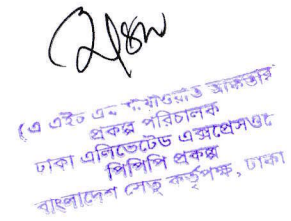 (এ এইচ এম
প্রকল্প পরিচালক
ঢাকা এলিভেটেড এক্সপ্রেসওয়ে
পিপিপি প্রকল্প
বাংলাদেশ সেতু কর্তৃপক্ষ, ঢাকা